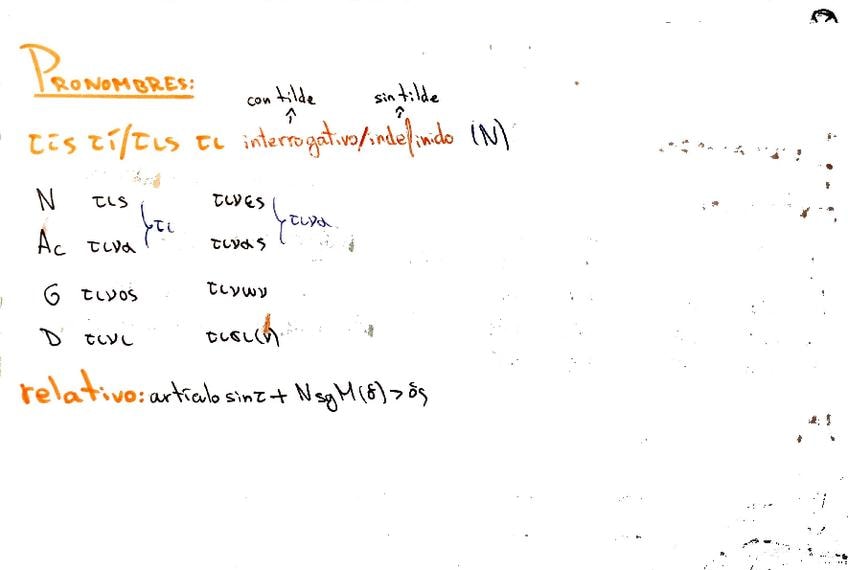 PRONOMBRES:
con tilde sin tilde
τίς τί/τις τι interrogativo/indefinido (N)
N τις τινες
τι τινα
Ac τινα τινας
G τινος τινων
D τινι τισι(ν)
relativo: artículo sin τ + N sg M (ὁ) > ὅς